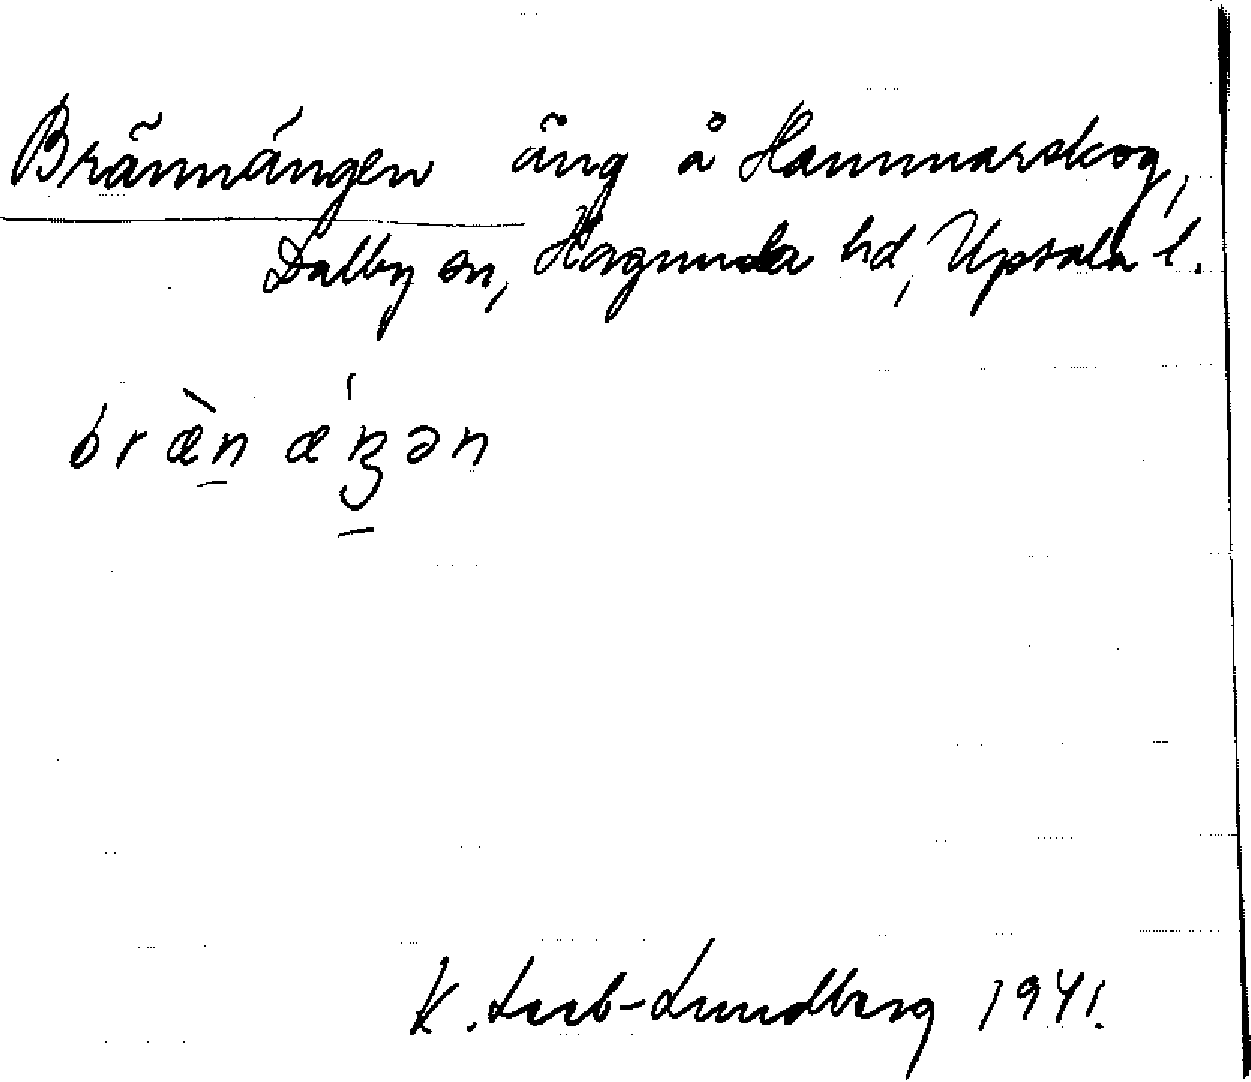 Brännängen äng å Hammarskog,
Dalby sn, Hagunda hd, Upsala l.
bræ̀n ǽŋən
K. Leeb-Lundberg 1941.